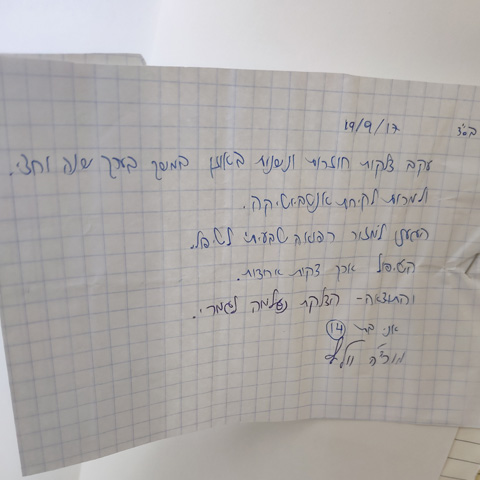 בס"ד
19/9/17
עקב דלקות חוזרות ונשנות באוזן במשך בערך שנה וחצי.
ולמרות לקיחת אנטיביוטיקה.
הגענו למזור רפואה טבעית לטיפול.
הטיפול ארך דקות אחדות.
והתוצאה - הדלקת נעלמה לגמרי.
אני בת 14